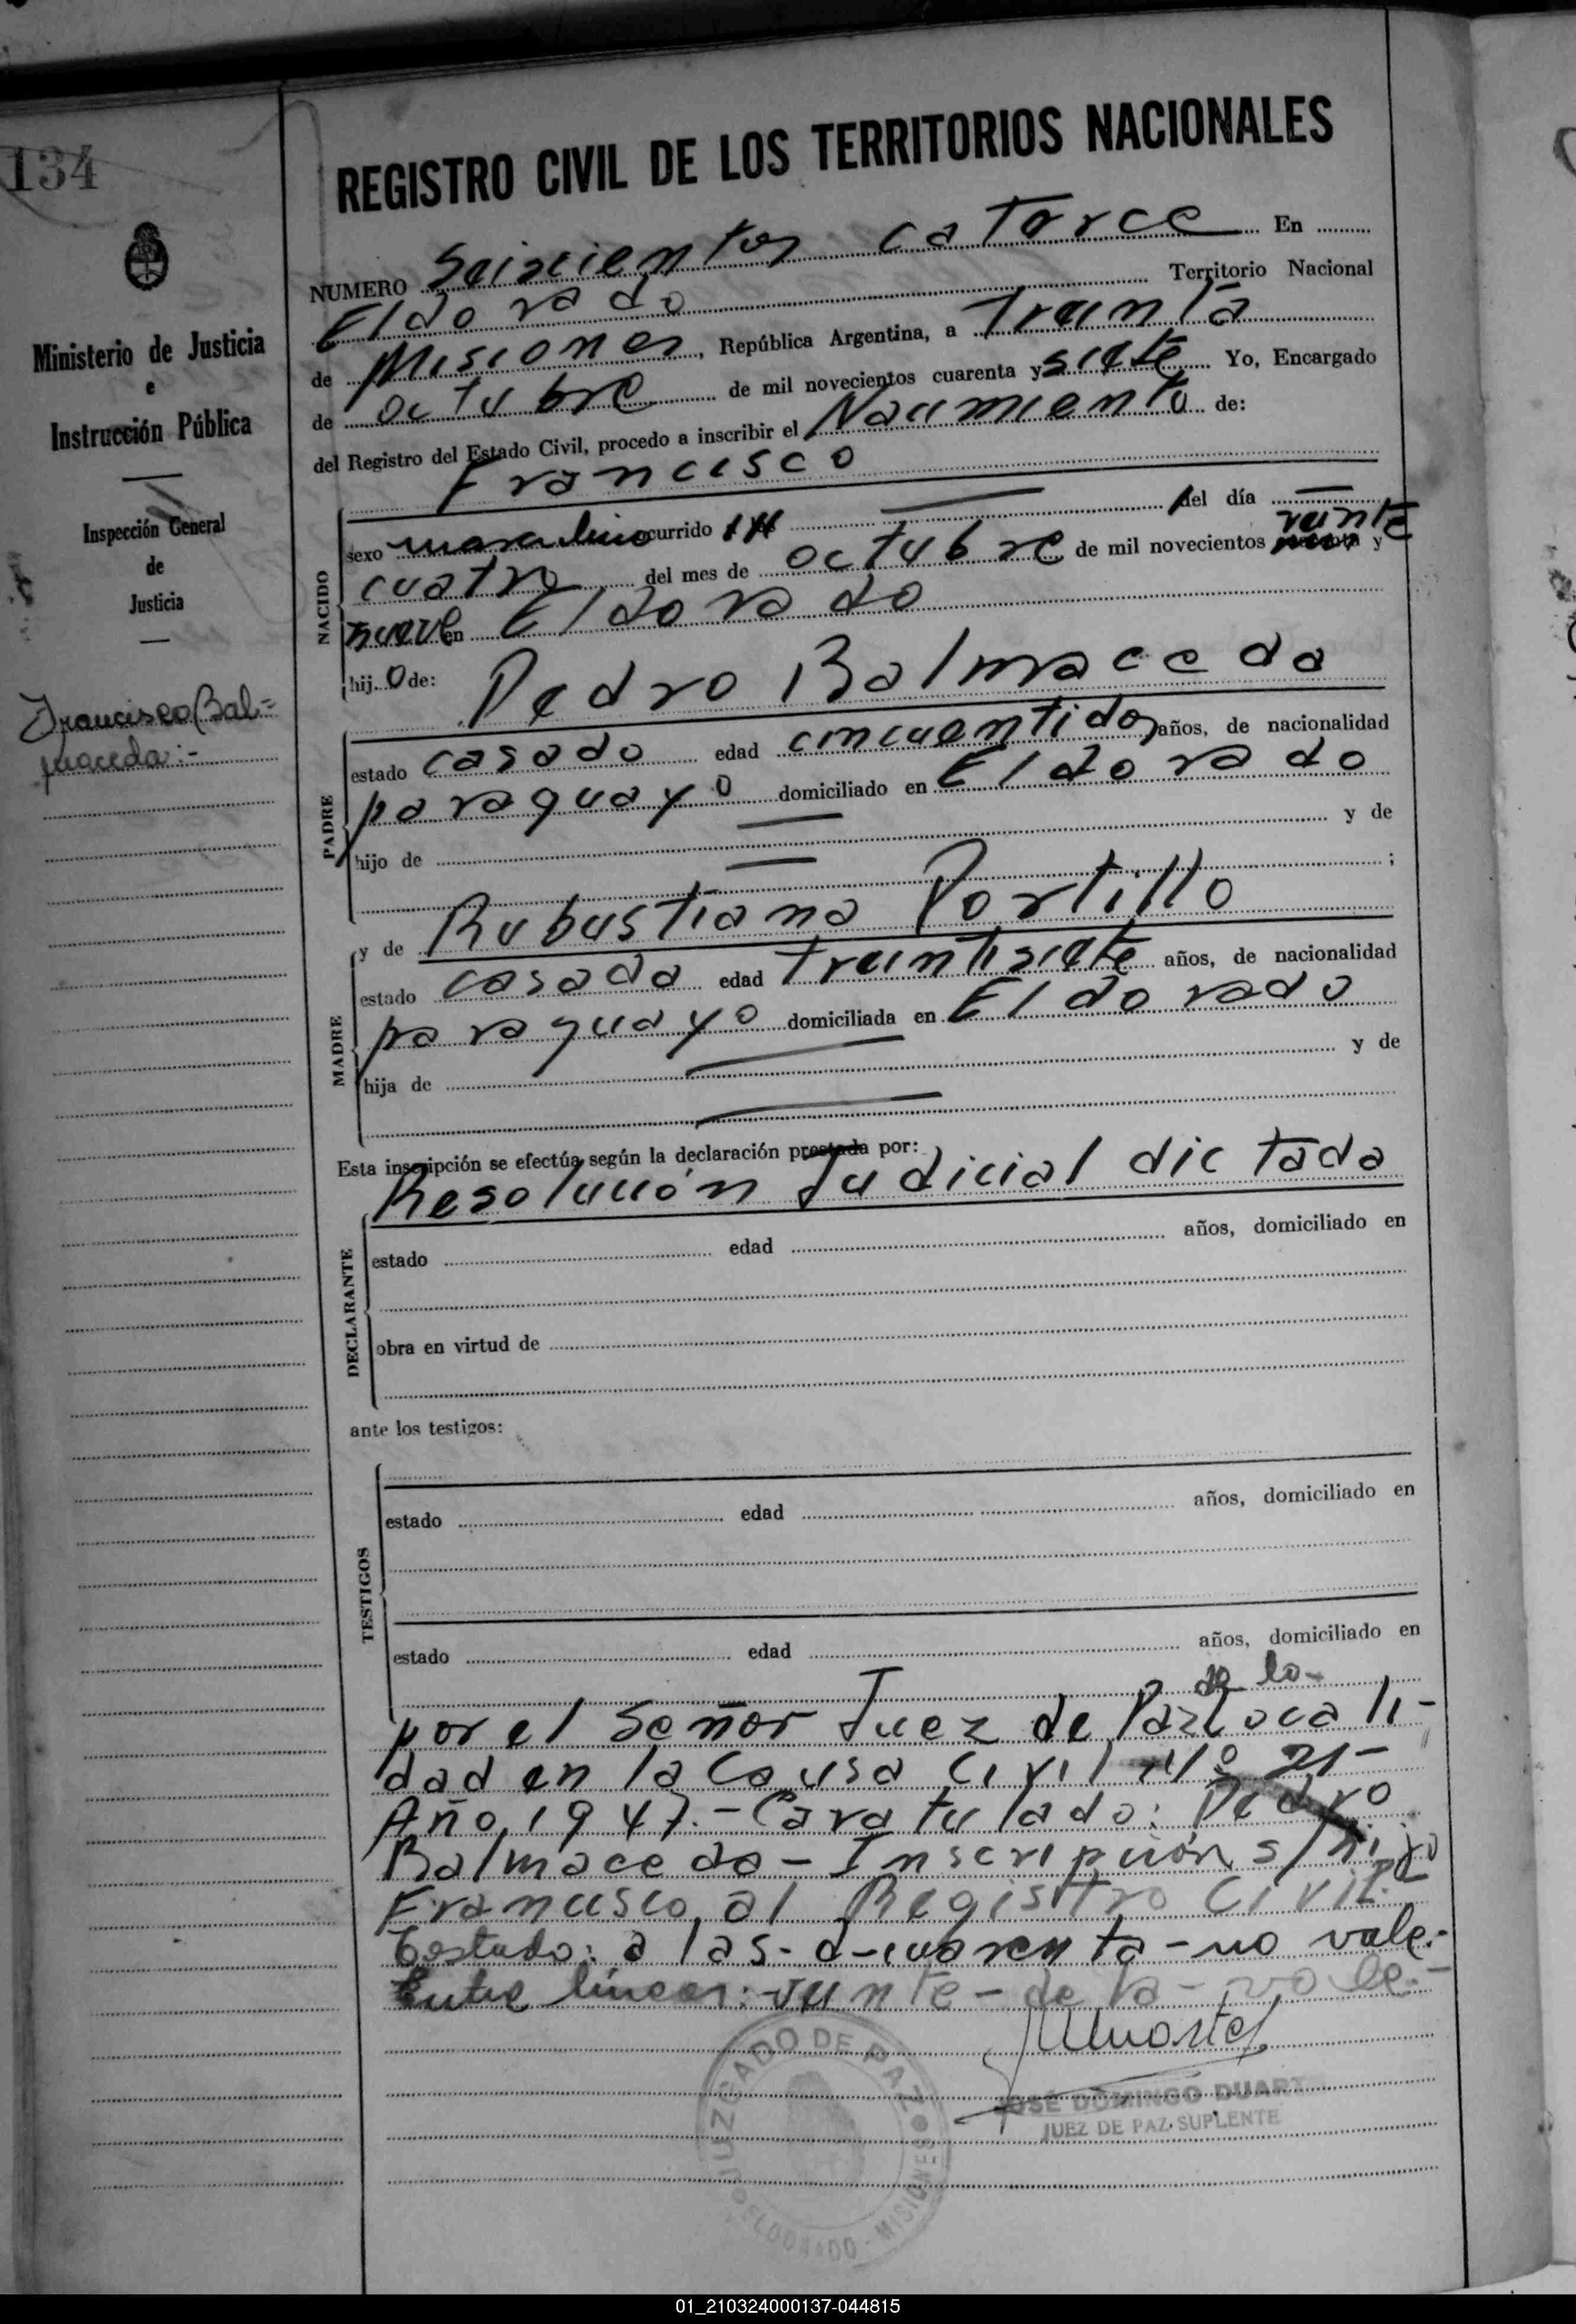 134
Ministerio de Justicia
e
Instrucción Pública
Inspección General
de
Justicia
Francisco Bal=
maceda:-
REGISTRO CIVIL DE LOS TERRITORIOS NACIONALES
NUMERO Seiscientos catorce En
Eldorado Territorio Nacional
de Misiones, República Argentina, a Treinta
de octubre de mil novecientos cuarenta y siete Yo, Encargado
del Registro del Estado Civil, procedo a inscribir el Nacimiento de:
Francisco
NACIDO
sexo masculino ocurrido del día veinte
cuatro del mes de octubre de mil novecientos y
nueve en Eldorado
hijo de: Pedro Balmaceda
PADRE
estado casado edad cincuentidos años, de nacionalidad
paraguayo domiciliado en Eldorado
hijo de y de
;
y de Rubustiana Portillo
MADRE
estado casada edad treintisiete años, de nacionalidad
paraguayo domiciliada en Eldorado
hija de y de
Esta inscripción se efectúa según la declaración prestada por:
Resolución Judicial dictada
DECLARANTE
estado edad años, domiciliado en
obra en virtud de
ante los testigos:
TESTIGOS
estado edad años, domiciliado en
estado edad años, domiciliado en
de la
por el Señor Juez de Paz Locali-
dad en la Causa Civil Nº 21-
Año, 1947.- Caratulado: Pedro
Balmaceda - Inscripción s/hijo
Francisco, al Registro Civil.
Testado: a las - d - cuarenta - no vale.-
Entre líneas: veinte - de la - vale.-
JUZGADO DE PAZ
ELDORADO - MISIONES
JOSÉ DOMINGO DUARTE
JUEZ DE PAZ SUPLENTE
01_210324000137-044815